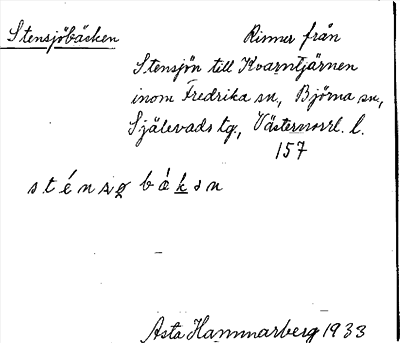 Stensjöbäcken Rinner från
Stensjön till Kvarntjärnen
inom Fredrika sn, Björna sn,
Själevads tg, Västernorrl. l.
157
Asta Hammarberg 1933